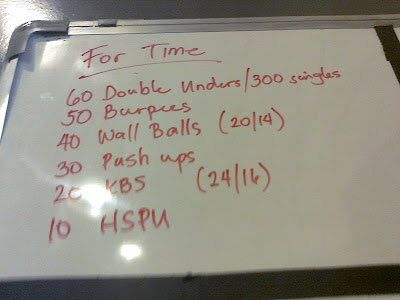 For Time
60 Double Unders/300 singles
50 Burpees
40 Wall Balls (20/14)
30 Push ups
20 KBS (24/16)
10 HSPU